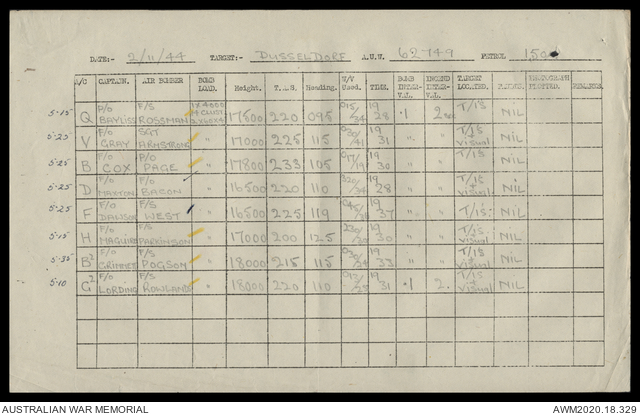 DATE:- 2/11/44 TARGET:- DUSSELDORF A.U.W. 62749 PETROL 1500
A/C CAPTAIN. AIR BOMBER BOMB LOAD. Height. T.A.S. Heading. W/V Used. TIME. BOMB INTER- VAL. INCEND INTER- VAL. TARGET LOCATED. FAILURE. PHOTOGRAPH PLOTTED. REMARKS.
5-15 Q P/O BAYLISS F/S ROSSMAN 1x4000 17500 220 095 015/34 19 28 .1 2 T/I's NIL
5-25 V F/O GRAY SGT ARMSTRONG " 17000 225 115 030/41 19 31 " " T/I's + Visual NIL
5-25 B F/O COX P/O PAGE " 17800 233 105 017/19 19 30 " " T/I's NIL
5-25 D F/O MAXTON F/O BACON " 16500 220 110 19 28 " " T/I's + Visual NIL
5-25 F F/O DAWSON F/S WEST " 16500 225 119 19 37 " " T/I's NIL
5-15 H F/O MAGUIRE F/S PARKINSON " 17000 200 125 19 30 " " T/I's + Visual NIL
5-35 B² F/O GRIMMET F/S POGSON " 18000 215 115 19 33 " " T/I's + Visual NIL
5-10 G² F/O LORDING F/S ROWLANDS " 18000 220 110 19 31 .1 2. T/I's + Visual NIL
AUSTRALIAN WAR MEMORIAL AWM2020.18.329